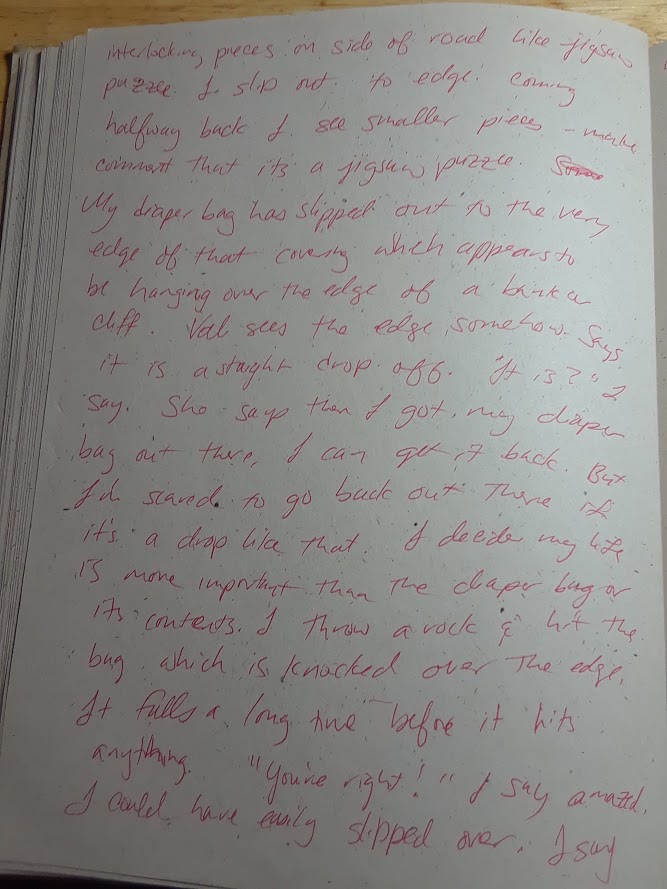 interlocking pieces on side of road like jigsaw
puzzle. I slip out to edge. coming
halfway back I see smaller pieces - make
comment that its a jigsaw puzzle.
My diaper bag has slipped out to the very
edge of that covering which appears to
be hanging over the edge of a bank or
cliff. Val sees the edge somehow. Says
it is a staight drop off. "It is?" I
say. She says then I got my diaper
bag out there, I can get it back. But
I'm scared to go back out there if
it's a drop like that. I decide my life
is more important than the diaper bag or
its contents. I throw a rock & hit the
bag which is knocked over the edge.
It falls a long time before it hits
anything. "You're right!" I say amazed.
I could have easily slipped over. I say